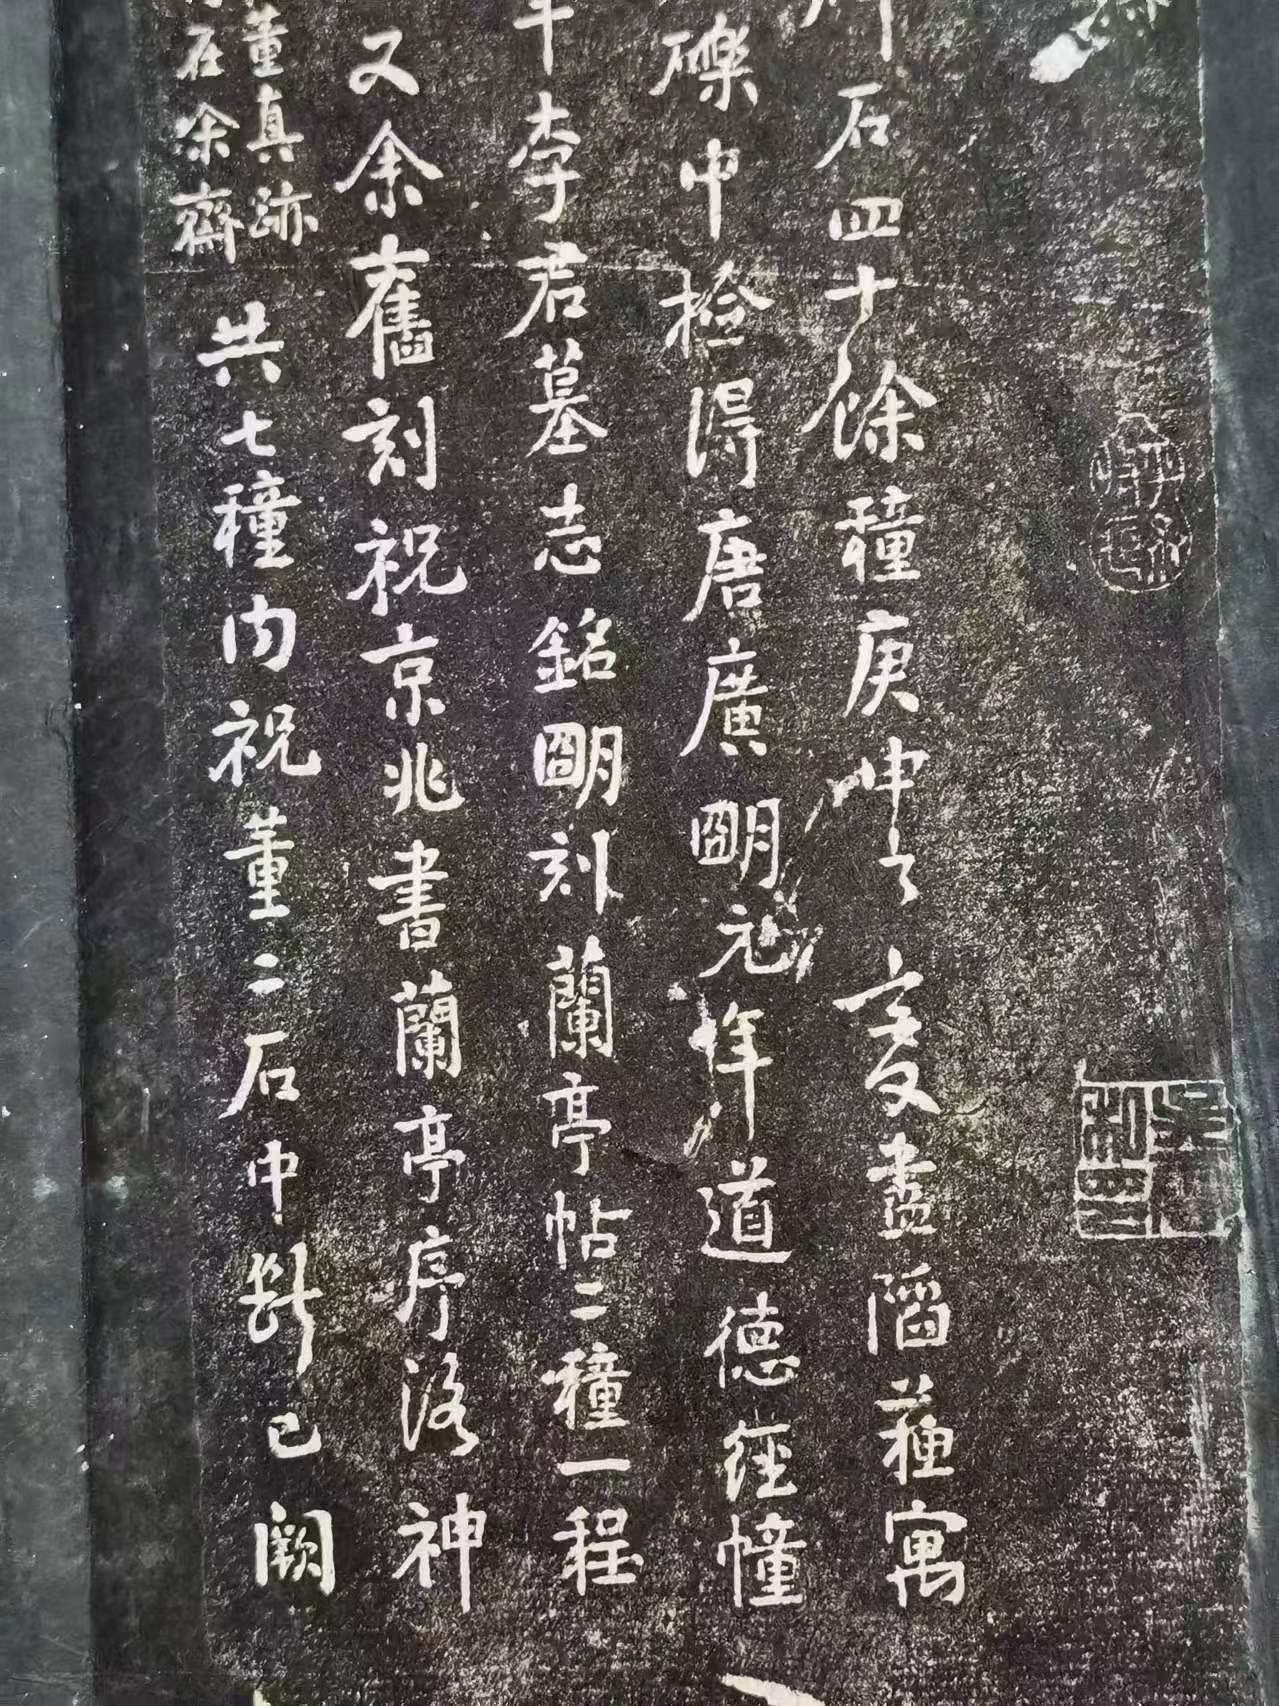 石四十餘種庚申之變盡陷蘓寓
礫中檢得唐廣明元年道德經幢
李君墓志銘明刻蘭亭帖二種一程
又余舊刻祝京兆書蘭亭序洛神
董真跡
在余齋
共七種內祝董二石中斷已闕